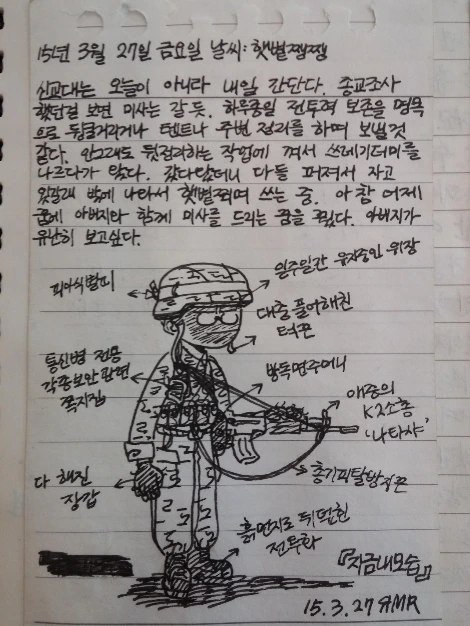 15년 3월 27일 금요일 날씨: 햇볕쨍쨍
신교대는 오늘이 아니라 내일 간단다. 종교조사
했던걸 보면 미사는 갈 듯. 하루종일 전투력 보존을 명목
으로 뒹굴거리거나 텐트나 주변 정리를 하며 보낼것
같다. 안그래도 뒷정리하는 작업에 껴서 쓰레기더미를
나르다가 왔다. 갔다왔더니 다들 퍼져서 자고
있길래 밖에 나타서 햇볕쬐며 쓰는 중. 아 참 어제
꿈에 아버지랑 함께 미사를 드리는 꿈을 꿨다. 아버지가
유난히 보고싶다.
피아식별띠
일주일간 유지중인 위장
대충 풀어헤친
턱끈
통신병 전용
각종보안관련
쪽지집
방독면주머니
애증의
K2소총
'나타샤'
다 해진
장갑
총기피탈방지끈
흙먼지로 뒤덮힌
전투화
『지금내모습』
15.3.27